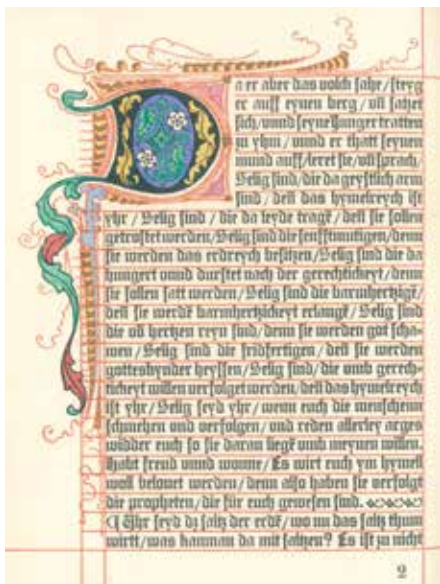 Da er aber das volck sahe/steyg
er auff eynen berg/vñ satzet
sich/vnnd seyne Junger tratten
zu yhm/vnnd er thatt seynen
mund auff/leret sie/vñ sprach/
Selig sind/die da geystlich arm
sind/deñ das hymelreych ist
yhr/Selig sind/die da leyde tragē/deñ sie sollen
getrostet werden/Selig sind die senfftmutigen/denn
sie werden das erdreych besitzen/Selig sind die da
hungert vnnd durstet nach der gerechtickeyt/denn
sie sollen satt werden/Selig sind die barmhertzigē/
deñ sie werdē barmhertzickeyt erlangē/Selig sind
die vō hertzen reyn sind/denn sie werden got scha-
wen/Selig sind die fridfertigen/deñ sie werden
gottes kynder heyssen/Selig sind/die vmb gerech-
tickeyt willen verfolget werden/deñ das hymelreych
ist yhr/Selig seyd yhr/wenn euch die menschenn
schmehen vnd verfolgen/vnd reden allerley arges
widder euch so sie daran liegē vmb meynen willen.
Habt freud vnnd wonne/Es wirt euch ym hymell
woll belonet werden/denn also haben sie verfolgt
die propheten/die fur euch gewesen sind.
¶ Yhr seyd dz saltz der erdē/wo nu das saltz thum
wirtt/was kan man da mit saltzen? Es ist zu nicht
2